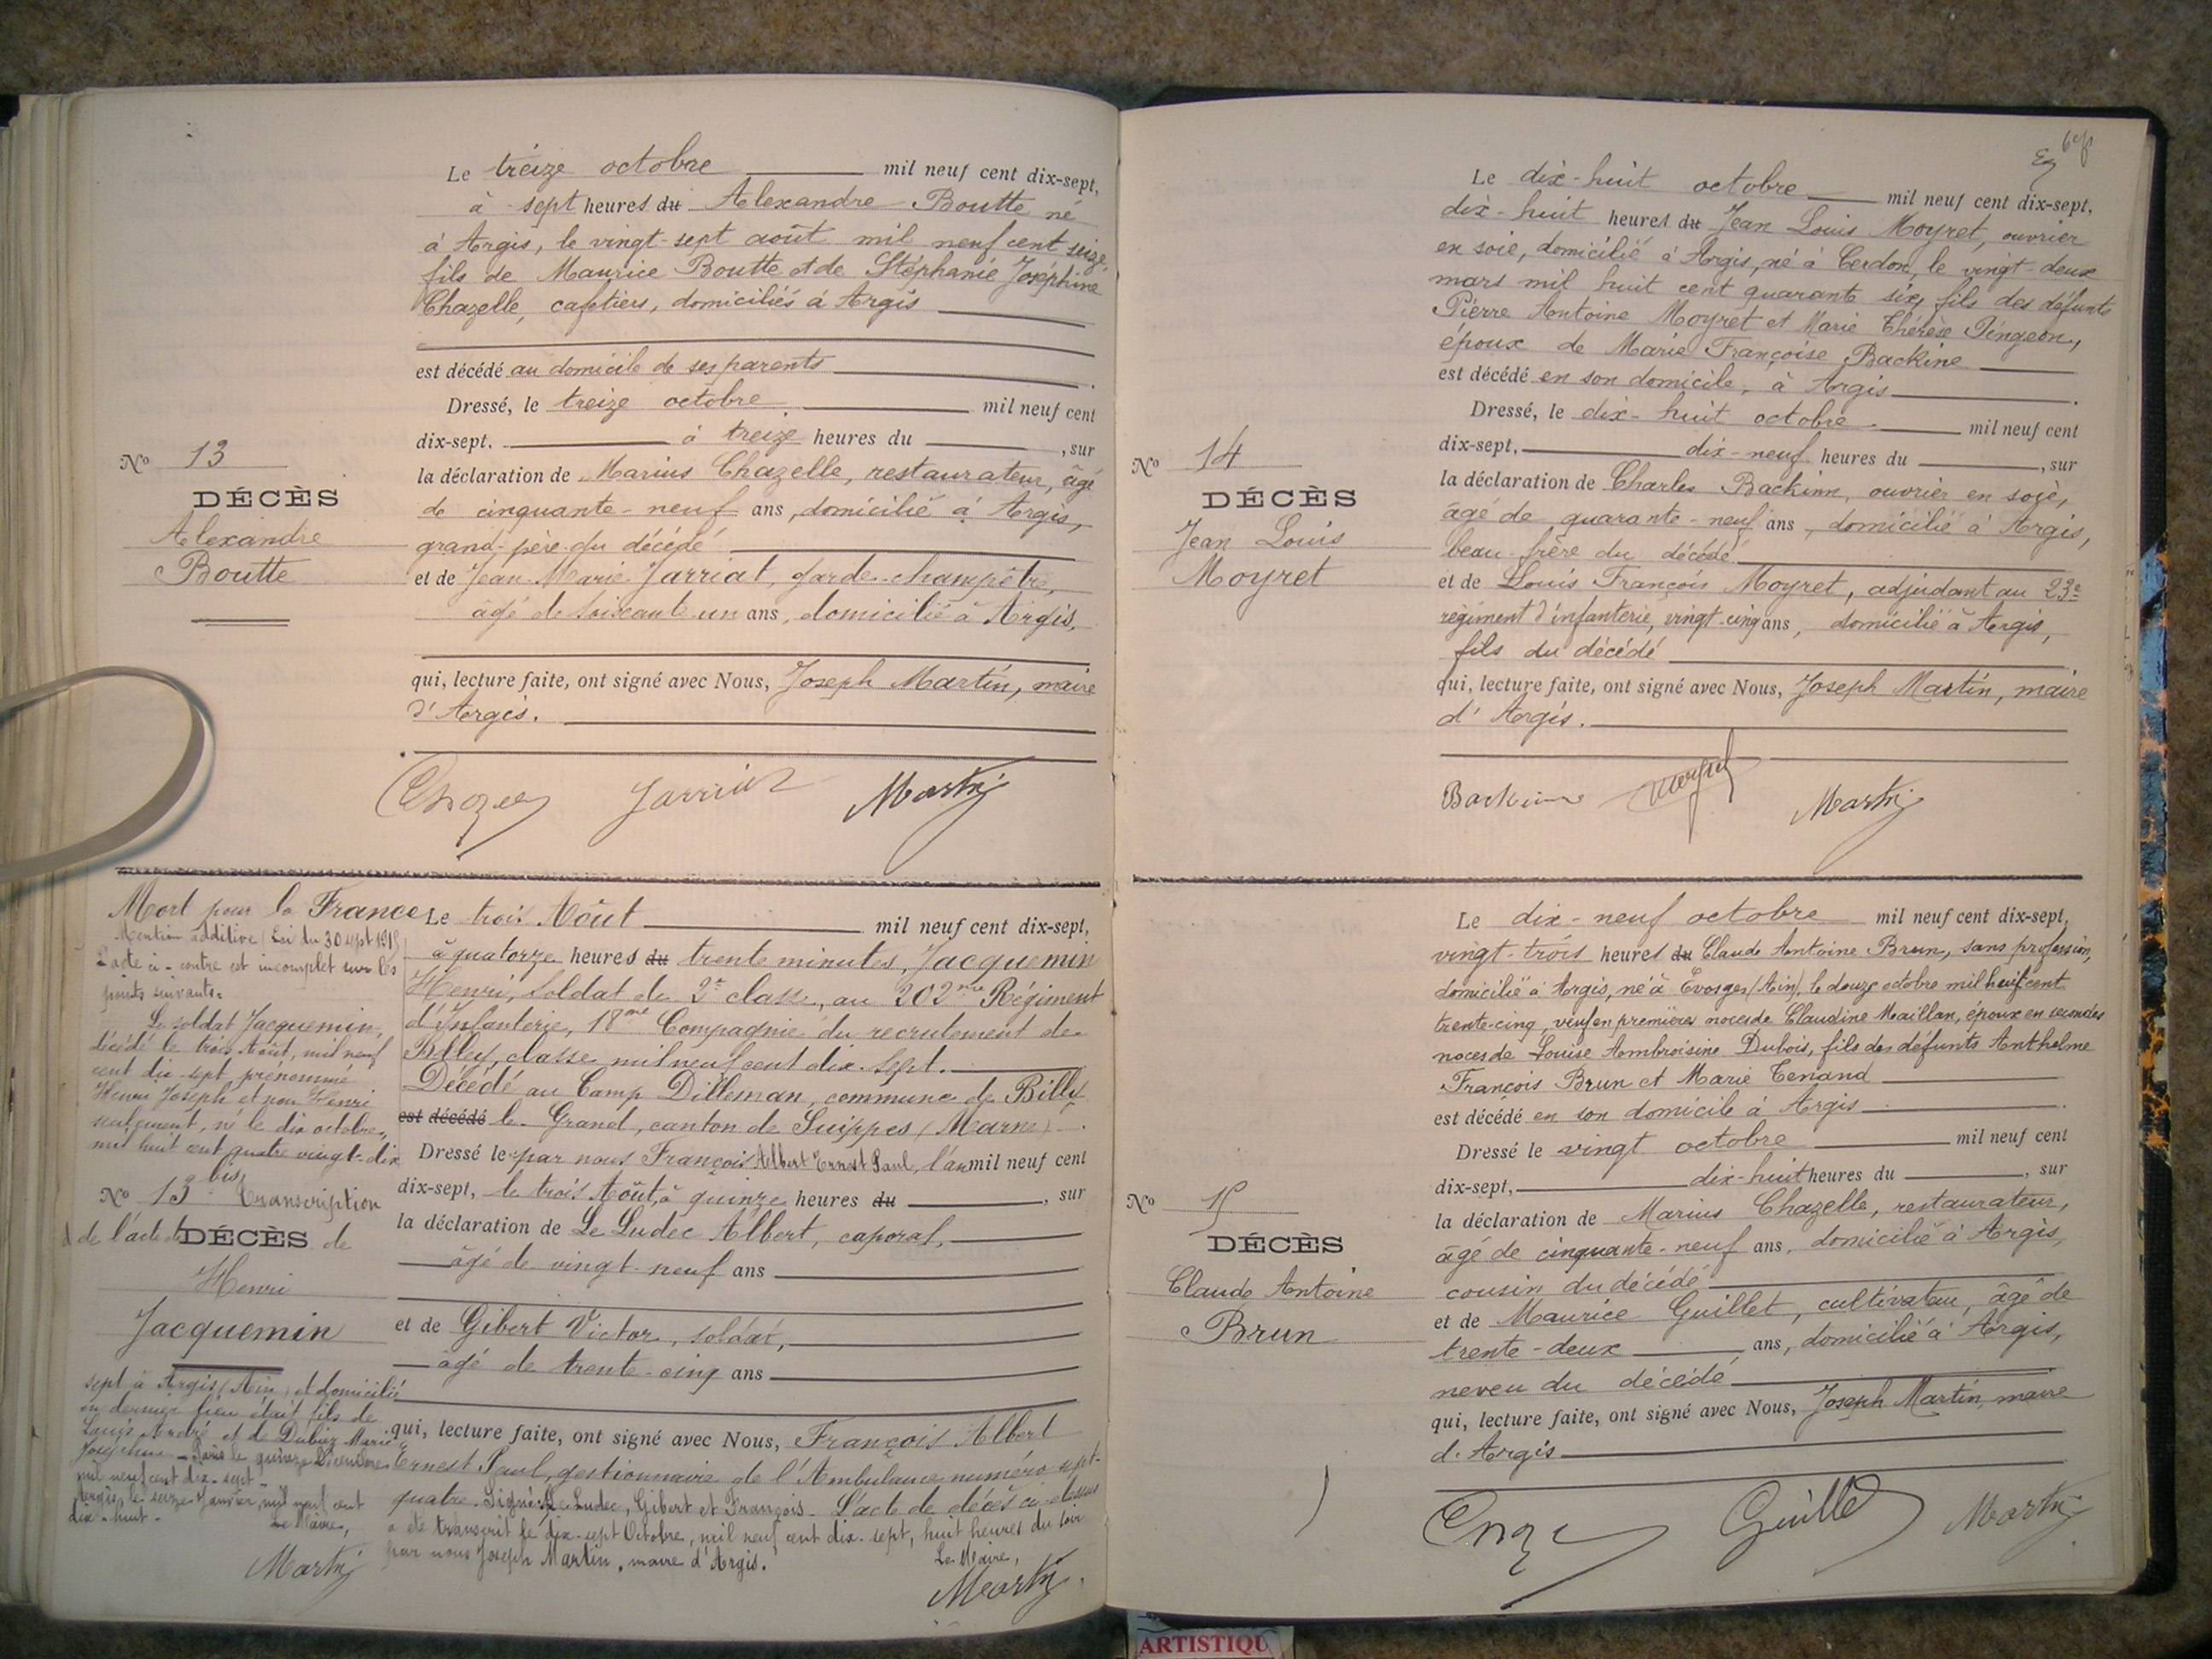 Le treize octobre mil neuf cent dix-sept,
à sept heures du Alexandre Boutte né
à Argis, le vingt-sept août mil neuf cent seize,
fils de Maurice Boutte et de Stéphanie Joséphine
Chazelle, cafetiers, domiciliés à Argis
est décédé au domicile de ses parents.
Dressé, le treize octobre mil neuf cent
dix-sept. à treize heures du , sur
la déclaration de Marius Chazelle, restaurateur, âgé
de cinquante-neuf ans, domicilié à Argis,
grand-père du décédé
et de Jean-Marie Jarriat, garde-champêtre,
âgé de soixante-un ans, domicilié à Argis,
qui, lecture faite, ont signé avec Nous, Joseph Martin, maire
d'Argis.
No 13
DÉCÈS
Alexandre
Boutte
Jarriat Martin
Mort pour la France
Mention additive (Loi du 30 sept 1915)
L'acte ci-contre est incomplet sur les
points suivants.
Le soldat Jacquemin,
décédé le trois Août, mil neuf
cent dix-sept prénommé
Henri Joseph et non Henri
seulement, né le dix octobre,
mil huit cent quatre vingt-dix
No 13 bis, Transcription
de l'acte de DÉCÈS de
Henri
Jacquemin
sept à Argis (Ain) et domicilié
en dernier lieu était fils de
Louis André et de Dubiez Marie
Joséphine - Paris le quinze Décembre
mil neuf cent dix-sept -
Argis, le seize Janvier, mil neuf cent
dix-huit -
Le Maire,
Martin
Le trois Août mil neuf cent dix-sept,
à quatorze heures du trente minutes, Jacquemin
Henri, soldat de 2e classe, au 202me Régiment
d'Infanterie, 18me Compagnie du recrutement de
Belley, classe mil neuf cent dix-sept.
Décédé au Camp Dilleman, commune de Billy
est décédé le Grand, canton de Suippes (Marne).
Dressé le par nous François Albert Ernest Paul, l'an mil neuf cent
dix-sept, le trois Août, à quinze heures du , sur
la déclaration de Le Ludec Albert, caporal,
âgé de vingt-neuf ans
et de Gibert Victor, soldat,
âgé de trente-cinq ans
qui, lecture faite, ont signé avec Nous, François Albert
Ernest Paul, gestionnaire de l'Ambulance numéro sept-
quatre. Signé: Le Ludec, Gibert et François. L'acte de décès ci-dessus
a été transcrit le dix-sept Octobre, mil neuf cent dix-sept, huit heures du soir
par nous Joseph Martin, maire d'Argis.
Le Maire,
Martin
Le dix-huit octobre mil neuf cent dix-sept,
dix-huit heures du Jean Louis Moyret, ouvrier
en soie, domicilié à Argis, né à Cerdon, le vingt-deux
mars mil huit cent quarante six, fils des défunts
Pierre Antoine Moyret et Marie Thérèse Pingeon,
époux de Marie Françoise Backine
est décédé en son domicile, à Argis.
Dressé, le dix-huit octobre mil neuf cent
dix-sept, dix-neuf heures du , sur
la déclaration de Charles Backinn, ouvrier en soie,
âgé de quarante-neuf ans, domicilié à Argis,
beau-frère du décédé
et de Louis François Moyret, adjudant au 23e
régiment d'infanterie, vingt-cinq ans, domicilié à Argis,
fils du décédé
qui, lecture faite, ont signé avec Nous, Joseph Martin, maire
d'Argis.
No 14
DÉCÈS
Jean Louis
Moyret
Backine Moyret Martin
Le dix-neuf octobre mil neuf cent dix-sept,
vingt-trois heures du Claude Antoine Brun, sans profession,
domicilié à Argis, né à Evosges (Ain), le douze octobre mil huit cent
trente-cinq, veuf en premières noces de Claudine Maillan, époux en secondes
noces de Louise Ambroisine Dubois, fils des défunts Anthelme
François Brun et Marie Tenand
est décédé en son domicile à Argis.
Dressé le vingt octobre mil neuf cent
dix-sept, dix-huit heures du , sur
la déclaration de Marius Chazelle, restaurateur,
âgé de cinquante-neuf ans, domicilié à Argis,
cousin du décédé
et de Maurice Guillet, cultivateur, âgé de
trente-deux ans, domicilié à Argis,
neveu du décédé
qui, lecture faite, ont signé avec Nous, Joseph Martin, maire
d'Argis
No 15
DÉCÈS
Claude Antoine
Brun
Guillet Martin
ARTISTIQU